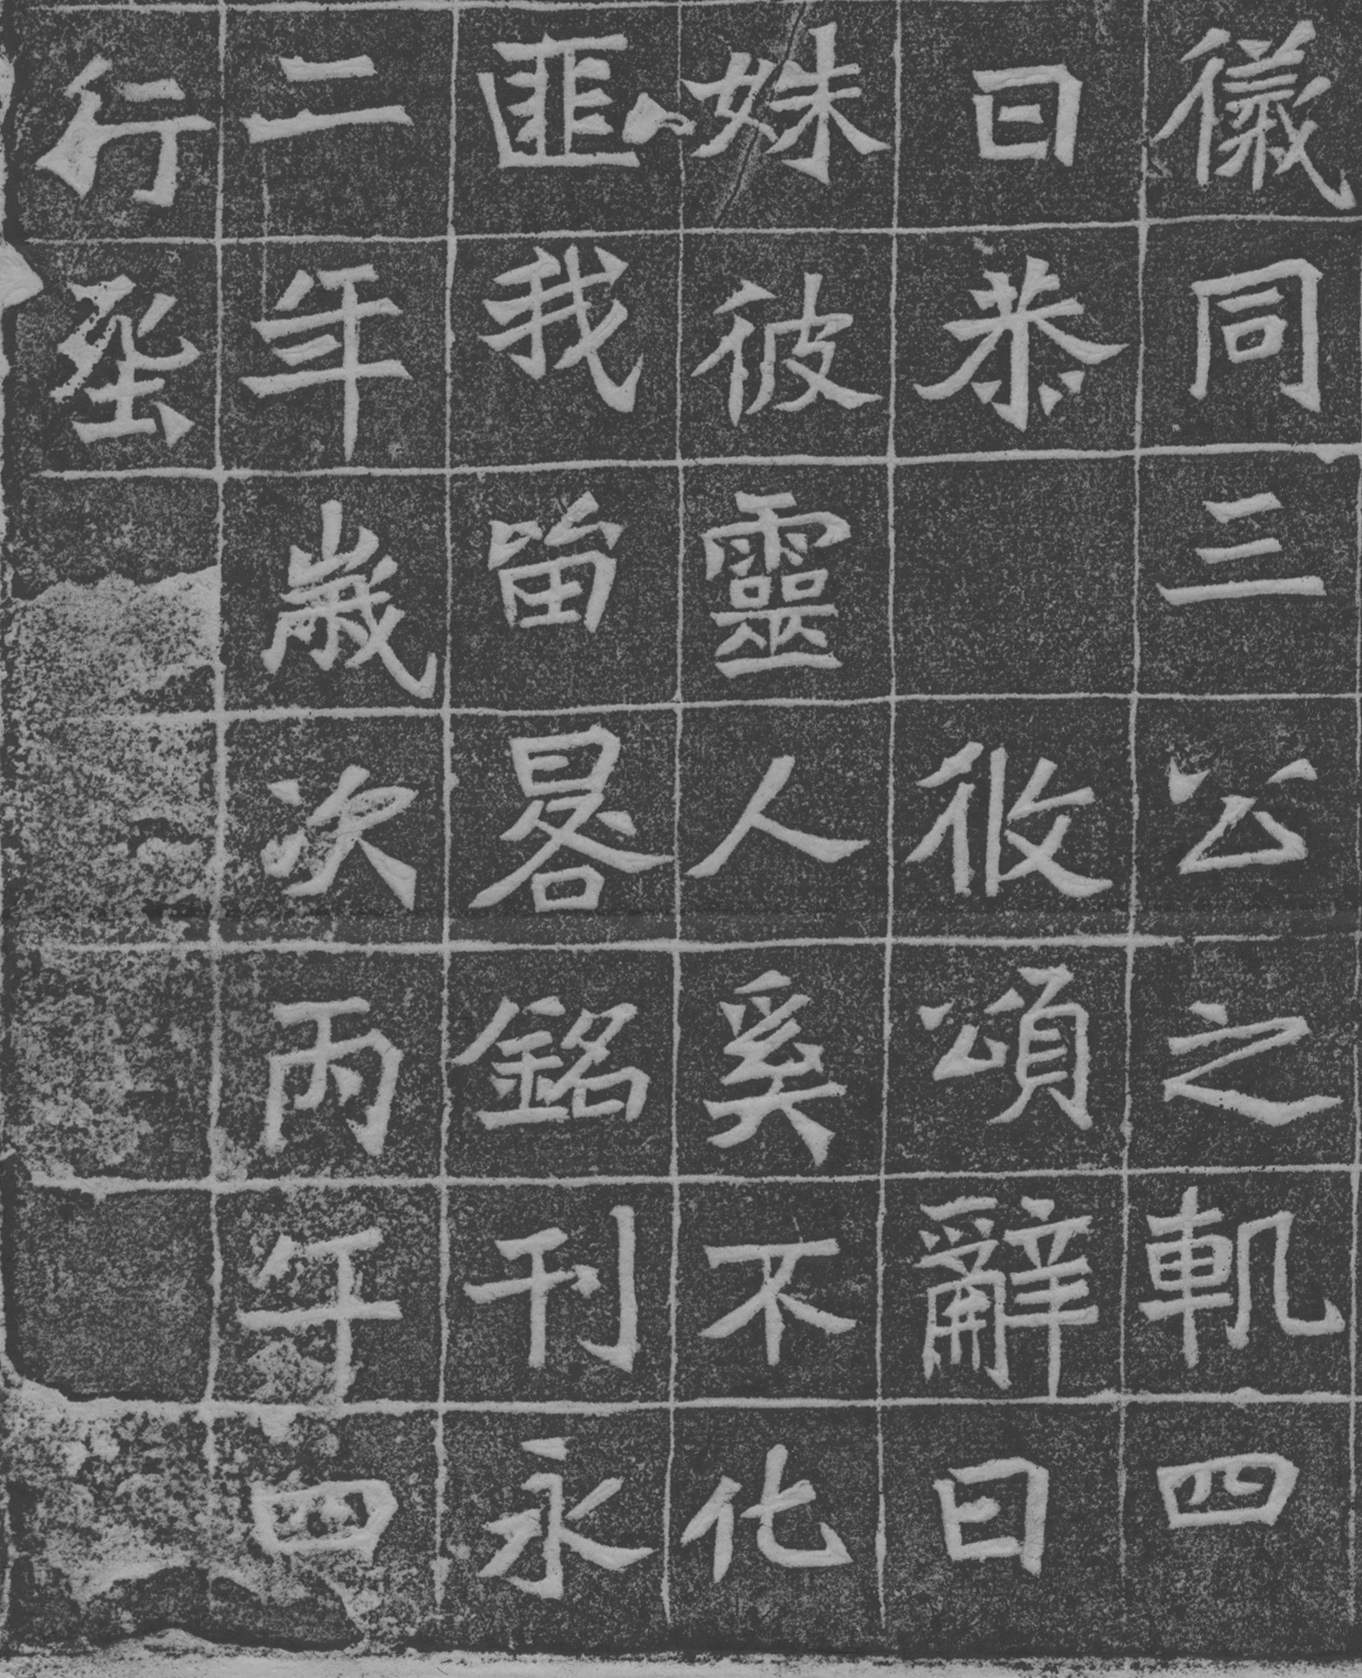 儀同三公之軌四
曰恭攸頌辭曰
姝彼靈人奚不化
匪我留晷銘刊永
二年歲次丙午四
行